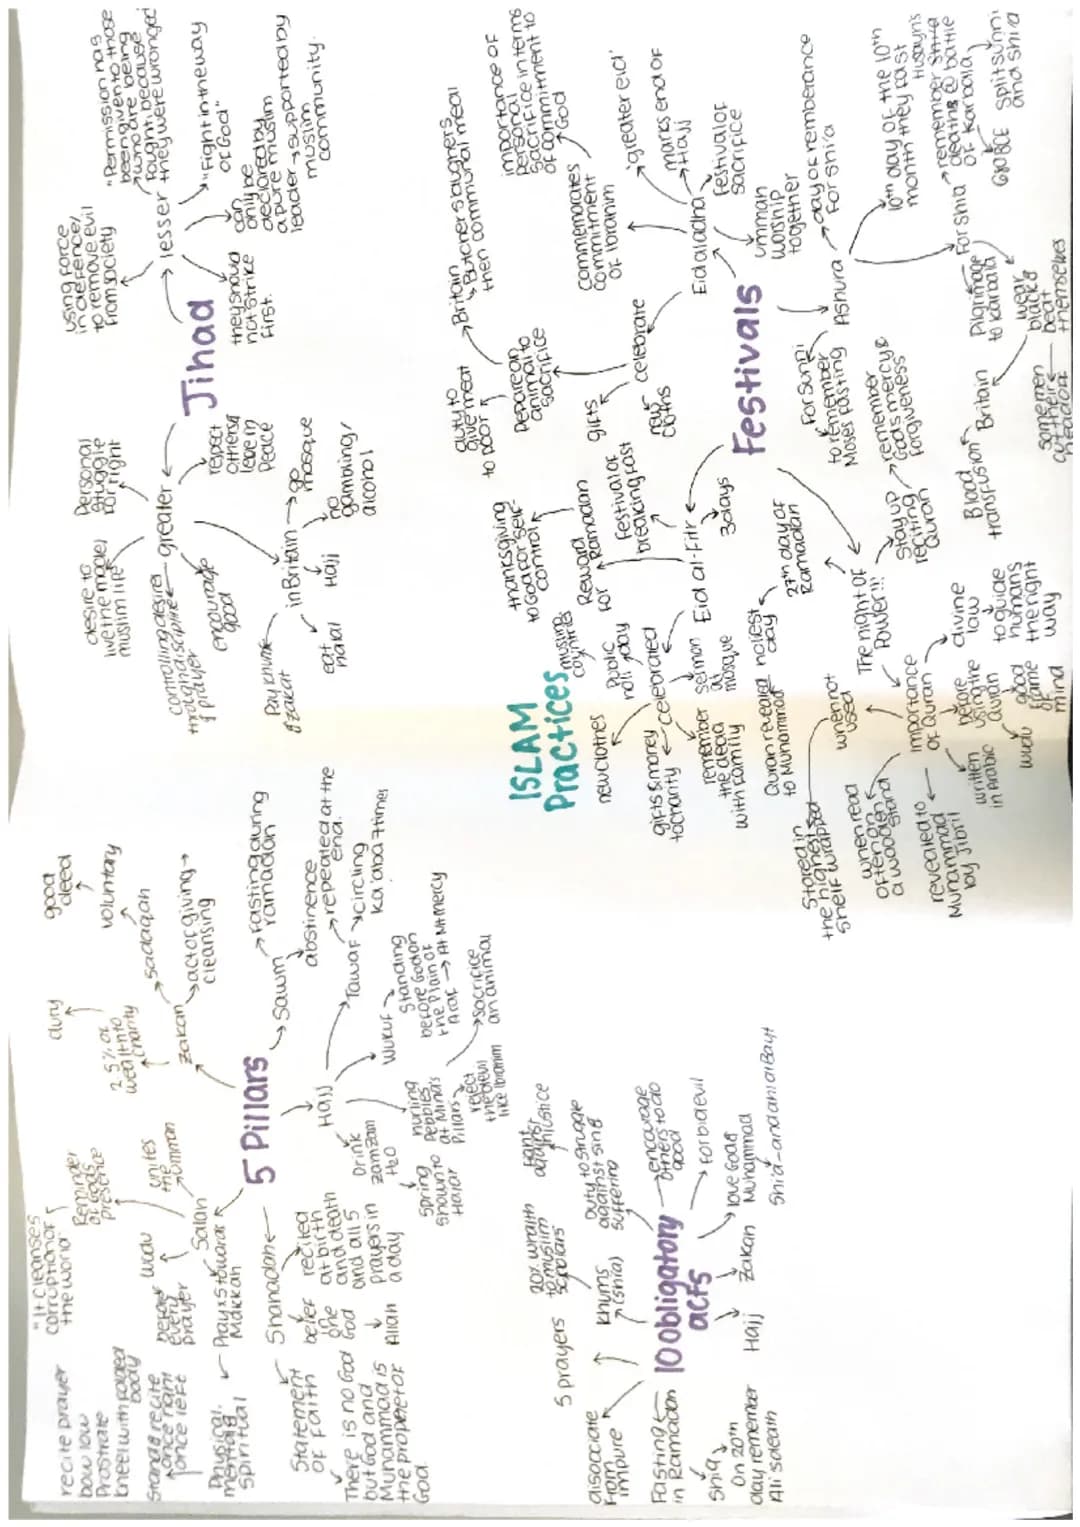 ISLAM
Practices
5 Pillars
Shahadah
Statement
of Faith
There is no God
but God and
Muhammad is
the prophet of
God
belief
in
one
God
Allah
recited
at birth
and death
and all 5
prayers in
a day
Salah
Pray x5 towards
Makkah
Physical,
mental &
spiritual
before
every
prayer
wudu
"it cleanses
corruption of
the world"
Reminder
of Gods
presence
unites
the
ummah
recite prayer
bow low
Prostrate
kneel with folded
body
Stand & recite
once right
once left
zakah
2.5% of
wealth to
charity
duty
sadaqah
voluntary
good
deed
act of giving →
cleansing
Sawm
Fasting during
ramadan
abstinence
Hajj
Tawaf
repeated at the
end.
circling
ka'aba 7 times
Wukuf
Standing
before God on
the Plain of
Araf → At Mt mercy
hurling
Pebbles
at Mina's
Pillars
reject
the devil
like Ibrahim
sacrifice
an animal
Drink
zamzam
H2O
Spring
shown to
Hajar
10 obligatory
acts
5 prayers
disociate
from
impure
Fasting
in Ramadan
Shia
On 20th
day remember
Ali's death
Hajj
Zakah
khums
(shia)
20% wealth
to muslim
scholars
duty to struggle
against sin &
suffering
fight
against
injustice
encourage
others to do
good
Forbid evil
love God &
Muhammad
Shia - and ahl al Bayt
Jihad
greater
Personal
struggle
for right
desire to
live the model
muslim life
controlling desires
through discipline
& prayer
encourage
good
respect
others &
live in
Peace
in Britain
Pay khums
& zakat
eat
halal
Hajj
no
gambling/
alcohol
go
mosque
lesser
using force
in defence/
to remove evil
from society
"Permission has
been given to those
who are being
fought, because
they were wronged"
"Fight in the way
of God"
can
only be
declared by
a pure muslim
leader → supported by
muslim
community.
they should
not strike
first.
Festivals
Eid al adha
greater eid'
marks end of
Hajj
Festival of
sacrifice
umman
worship
together
commemorates
commitment
of Ibrahim
importance of
personal
sacrifice in terms
of commitment to
God
celebrate
gifts
new
cloths
animal to
sacrifice
duty to
give meat
to poor
Britain
Butchers slaughters
then communal meal
Eid al-Fitr
3 days
Festival of
breaking fast
Reward
for
Ramadan
thanksgiving
to God for self-
control
celebrated
Public
holiday
muslim
countries
new clothes
gifts & money
to charity
remember
the dead
with family
Sermon
at
mosque
Ashura
day of rememberance
For shi'a
10th day of the 10th
month they fast
For Sunni
to remember
Moses fasting
For shia
remember Husayn's
death @ battle
of Karbala
680 BCE
Split sunni
and shia
Pilgrimage
to Karbala
wear
black &
beat
themselves
some men
cut their
head
Britain
Blood
transfusion
The night of
Power!!!
27th day of
Ramadan
holiest
day
Quran revealed
to Muhammad
Stay up
reciting
Quran
remember
Gods mercy &
forgiveness
importance
of Quran
when not
used
Stored in
the highest
shelf wrapped
when read
often on
a wooden
stand
revealed to
Muhammad
by Jibril
written
in Arabic
before
using the
Quran
wudu
good
frame
mind
divine
law
to guide
humans
the right
way